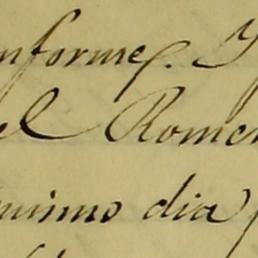 nforme. Y
el Rome
uismo dia